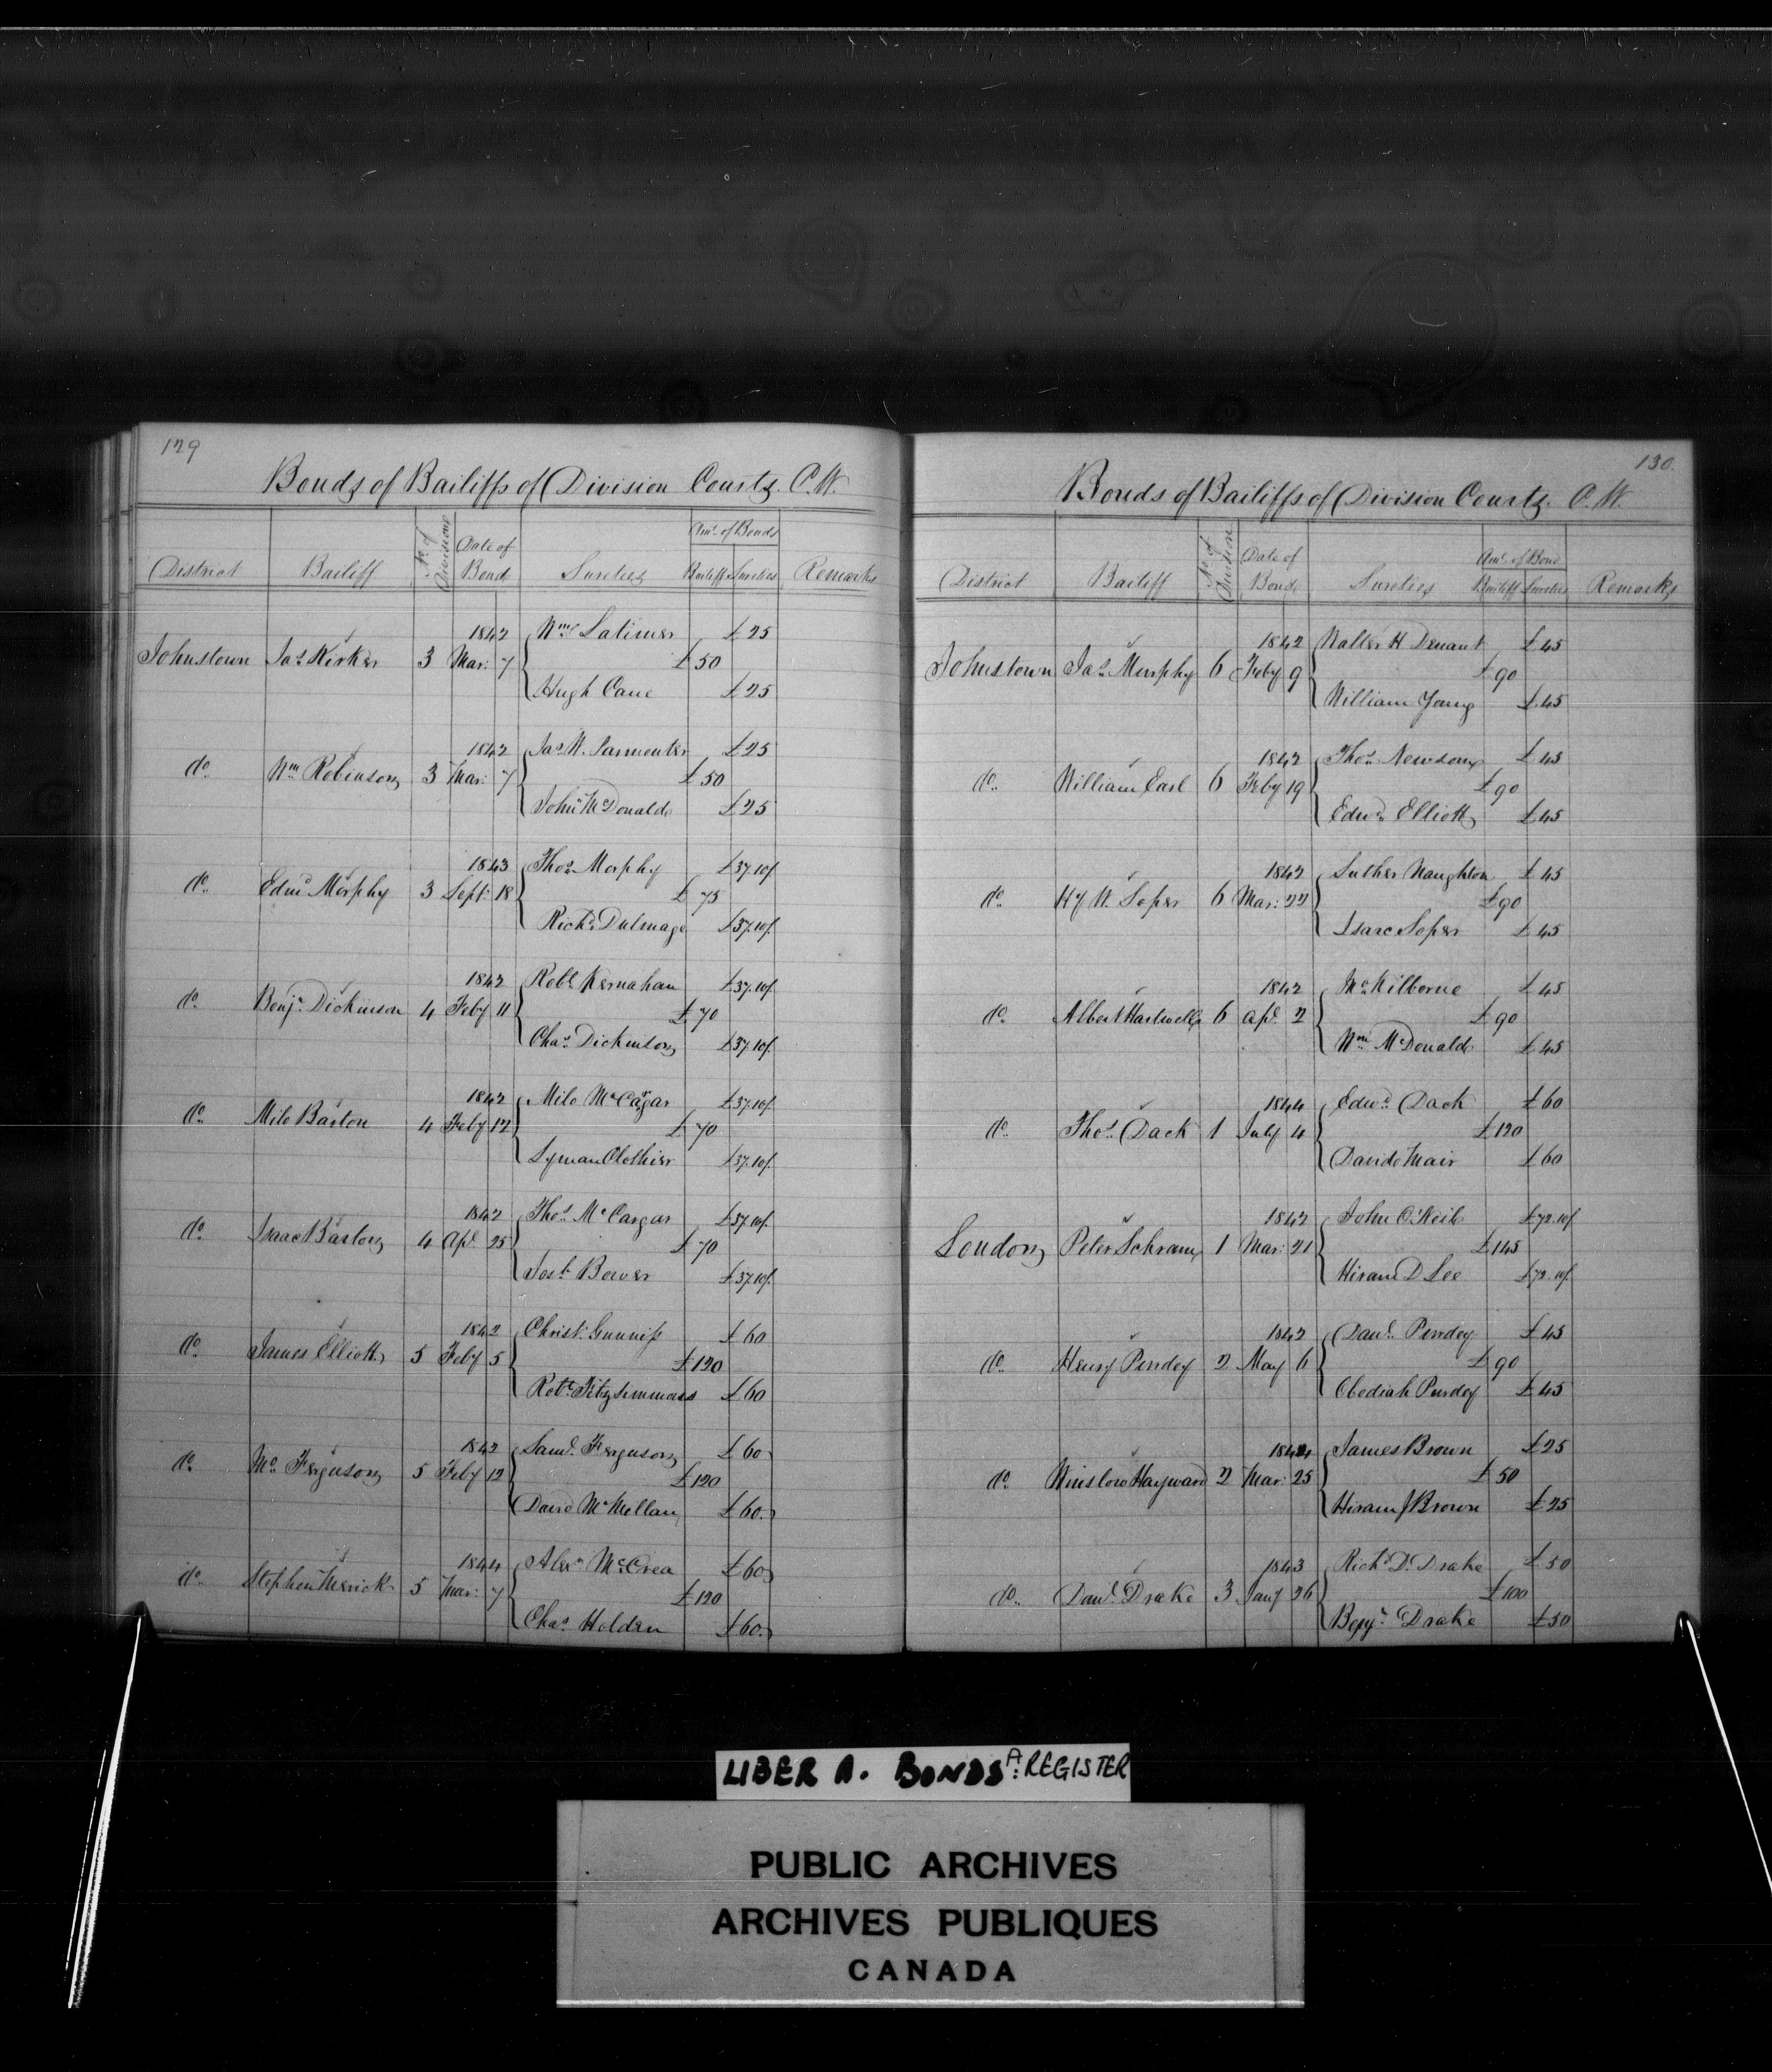 129
Bonds of Bailiffs of Division Courts. C.W.
District Bailiff No. of Division Date of Bond Sureties Amt. of Bonds Bailiff Sureties Remarks
1842 Wm. Latimer £25
Johnstown Jas. Kirker 3 Mar: 7 £50
Hugh Cane £25
1842 Jas. W. Parmenter £25
do. Wm. Robinson 3 Mar: 7 £50
John McDonald £25
1843 Thos. Morphy £37.10/.
do. Edmd. Morphy 3 Sept. 18 £75
Richd. Dulmage £37.10/.
1842 Robt. Kernahan £37.10/.
do. Benjn. Dickinson 4 Feby 11 £70
Chas. Dickinson £37.10/.
1842 Milo McCargar £37.10/.
do. Milo Barton 4 Feby 12 £70
Lyman Clothier £37.10/.
1842 Thos. McCargar £37.10/.
do. Isaac Barton 4 Apl. 25 £70
Josh. Bower £37.10/.
1842 Christr. Gunniss £60
do. James Elliott 5 Feby 5 £120
Robt. Fitzsimmons £60
1842 Saml. Ferguson £60
do. Ferguson 5 Feby 12 £120
David McMellan £60
1844 Alexr. McCrea £60
do. Stephen Merick 5 Mar: 7 £120
Chas. Holden £60
130.
Bonds of Bailiffs of Division Courts. C.W.
District Bailiff No. of Division Date of Bond Sureties Amt. of Bond Bailiff Sureties Remarks
1842 Walter H Denaut £45
Johnstown Jas. Murphy 6 Feby 9 £90
William Young £45
1842 Thos. Newsom £45
do. William Earl 6 Feby 19 £90
Edwd. Elliott £45
1842 Luther Naughton £45
do. Hy W. Soper 6 Mar: 22 £90
Isaac Soper £45
1842 Kilborne £45
do. Albert Hartwell 6 Apl. 2 £90
Wm. McDonald £45
1844 Edwd. Dack £60
do. Thos. Dack 1 July 4 £120
David Mair £60
1842 John O'Neil £72.10/.
London Peter Schram 1 Mar: 21 £145
Hiram D Lee £72.10/.
1842 Danl. Purdey £45
do. Henry Purdey 2 May 6 £90
Obediah Purdey £45
1844 James Brown £25
do. Winslow Hayward 2 Mar: 25 £50
Hiram J Brown £25
1843 Richd. D. Drake £50
do. Danl. Drake 3 Jany 26 £100
Benjn. Drake £50
LIBER A. BONDS A: REGISTER
PUBLIC ARCHIVES
ARCHIVES PUBLIQUES
CANADA